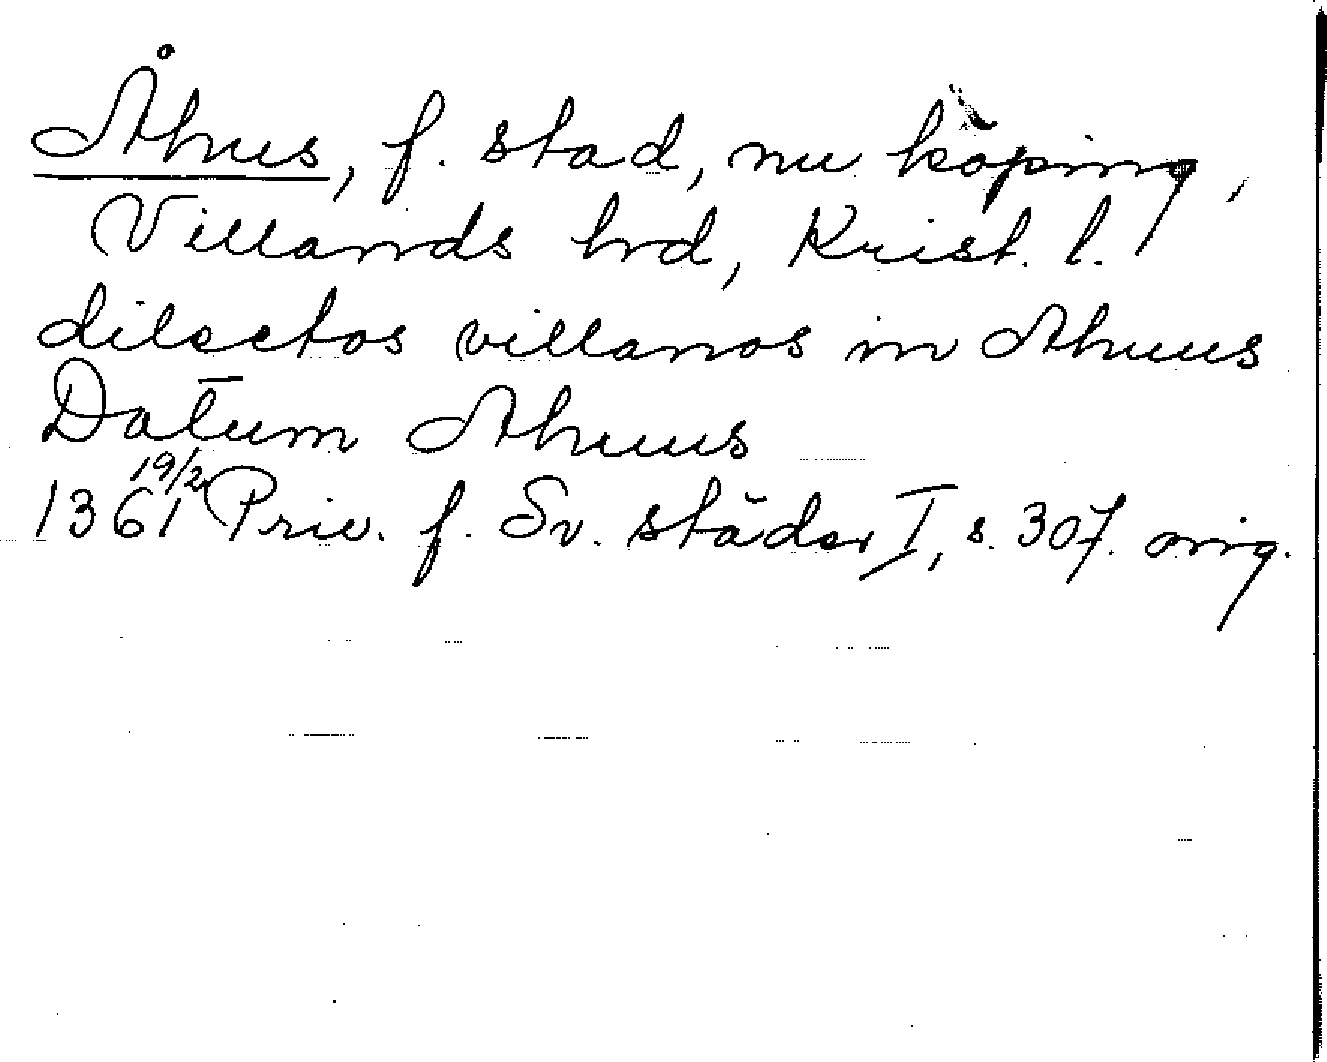 Åhus, f. stad, nu köping,
Villands hrd, Krist. l.
dilectos villanos in Ahuus
Datum Ahuus
1361 19/2 Priv. f. Sv. städer I, s. 307. orig.